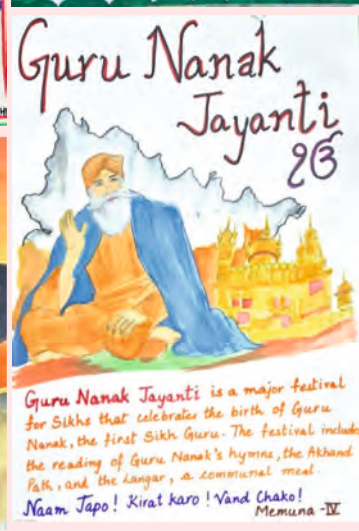 Guru Nanak
Jayanti
ੴ
Guru Nanak Jayanti is a major festival
for Sikhs that celebrates the birth of Guru
Nanak, the first Sikh Guru. The festival include
the reading of Guru Nanak's hymns, the Akhand
Path, and the Langar, a communal meal.
Naam Japo! Kirat karo! Vand Chako!
Memuna -IV